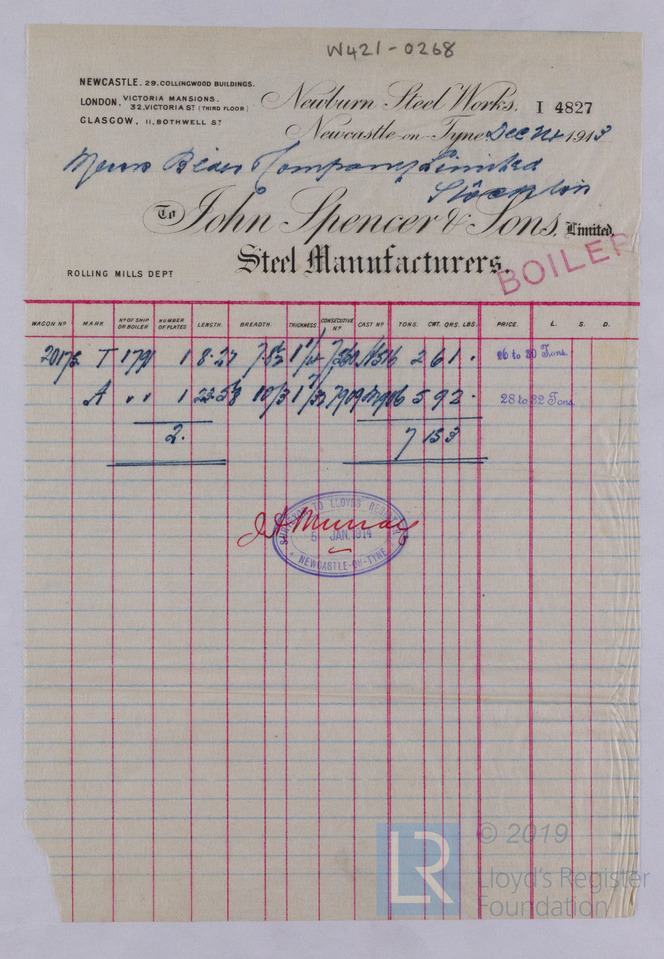 W421-0268
NEWCASTLE. 29. COLLINGWOOD BUILDINGS.
LONDON, VICTORIA MANSIONS.
32, VICTORIA ST (THIRD FLOOR)
GLASGOW, 11, BOTHWELL ST
Newburn Steel Works, I 4827
Newcastle-on-Tyne, Dec 1913
Messrs Blair & Company Limited
Stockton
To John Spencer & Sons, Limited,
Steel Manufacturers.
BOILER
ROLLING MILLS DEPT
WAGON Nº MARK Nº OF SHIP OR BOILER NUMBER OF PLATES LENGTH. BREADTH. THICKNESS. CONSECUTIVE Nº CAST Nº TONS. CWT. QRS. LBS. PRICE. L. S. D.
20175 T 1791 1 2 6 1 . 26 to 30 Tons.
A " " 1 5 9 2 . 28 to 32 Tons.
2. 7 15 3
SURVEYOR TO LLOYDS REGISTER
J A Murray
5 JAN. 1914
NEWCASTLE-ON-TYNE
LR
© 2019
Lloyd's Register
Foundation